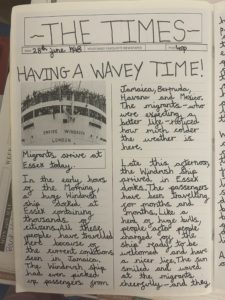 ~THE TIMES~
DATE: 28th June 1948
PRICE: 40p
HAVING A WAVEY TIME!
EMPIRE WINDRUSH
LONDON
Migrants arrive at
Essex today.
In the early hours
of the Morning,
a huge Windrush
ship docked at
Essex containing
thousands of
citizens. All these
people have travelled
here because of
the current conditions
seen in Jamaica.
The Windrush ship
had even picked
up passengers from
Jamaica, Bermuda,
Havana and Mexico.
The migrants - who
were expecting a
better life - noticed
how much colder
the weather is
here.
Late this afternoon,
the Windrush ship
arrived in Essex
docks. The passengers
have been travelling
for months and
months. Like a
herd of huge bulls,
people after people
charged off the
ship ready to be
welcomed and have
a nicer life. The sun
smiled and waved
at the migrants
cheerfully - and they